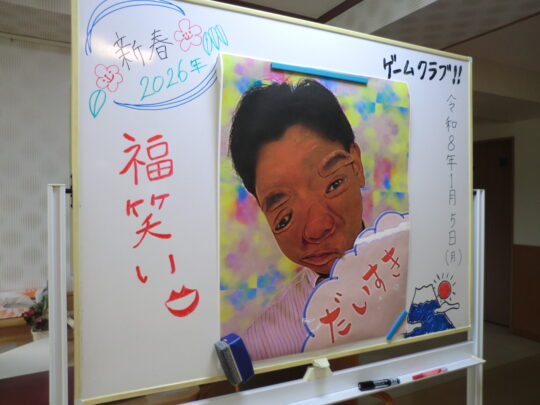 新春
2026年
ゲームクラブ!!
令和8年1月5日(月)
福笑い
だいすき